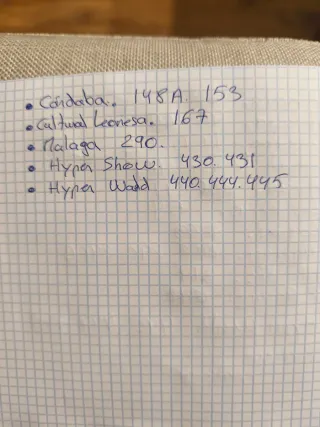 • Cordoba. 148A. 153
• Cultural Leonesa. 167
• Malaga 290.
• Hyper Show. 430. 431
• Hyper 440. 444. 445